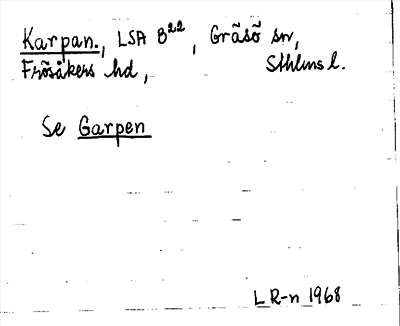 Karpan., LSA B²², Gräsö sn,
Frösåkers hd, Sthlms l.
Se Garpen
L R-n 1968